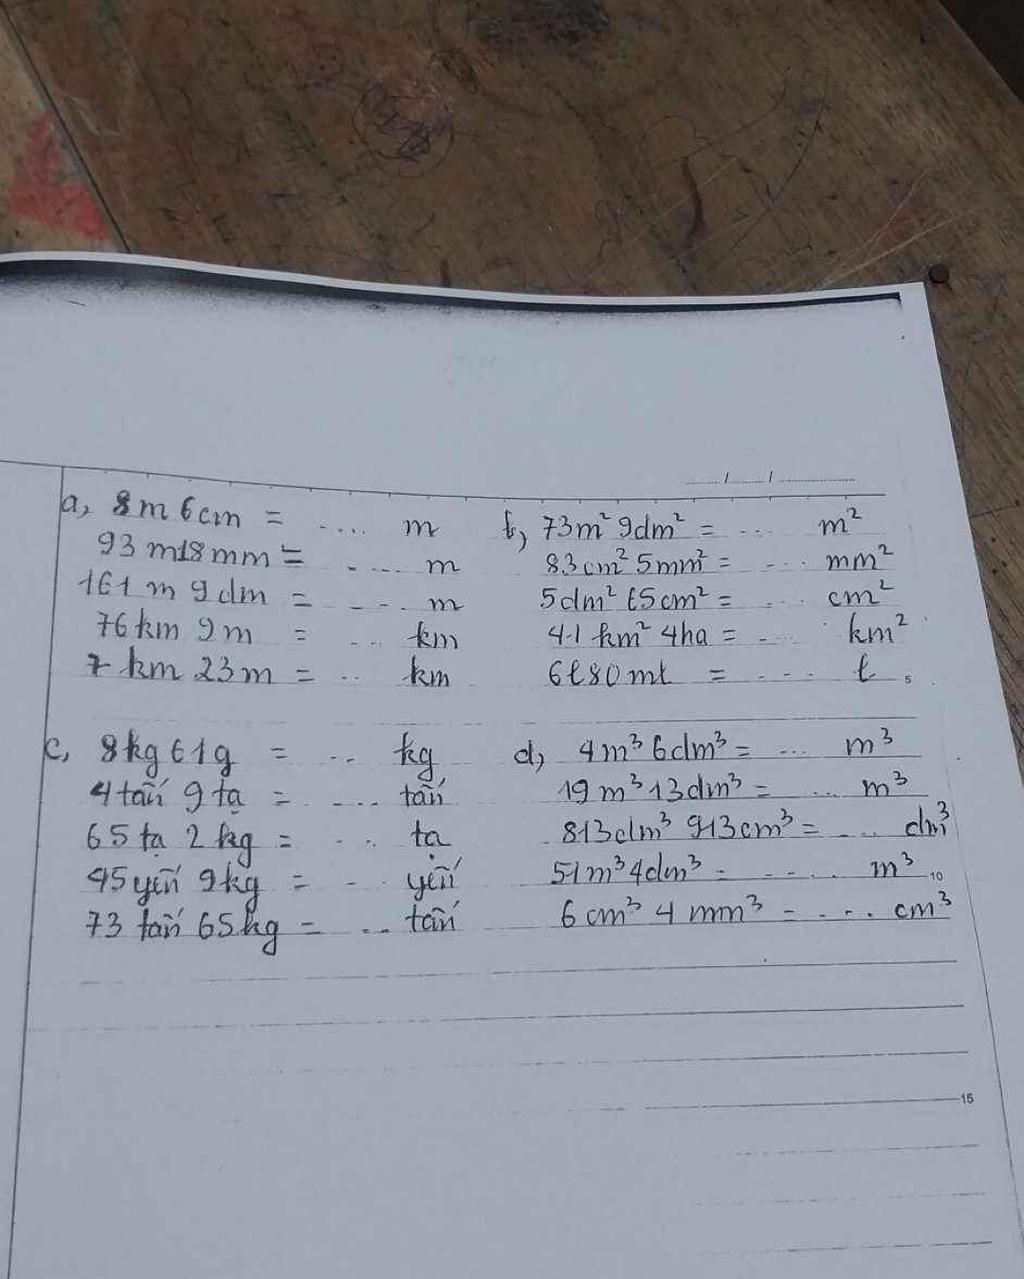 ...../...../...............
a, 8m 6cm = .... m
93 m18mm = ..... m
161 m 9dm = ..... m
76km 9m = ... km
7 km 23m = .. km
b, 73m² 9dm² = ... m²
83cm² 5mm² = .... mm²
5dm² 65cm² = ... cm²
41 km² 4ha = .... km²
6l80ml = .... l
5
c, 8kg61g = .. kg
4tấn 9tạ = .... tấn
65tạ 2kg = ... tạ
45yến 9kg = .. yến
73 tấn 65kg = .. tấn
d, 4m³ 6dm³ = ... m³
19m³13dm³ = ... m³
813dm³ 913cm³ = .... dm³
51m³4dm³ = ..... m³
10
6cm³ 4mm³ = .... cm³
15